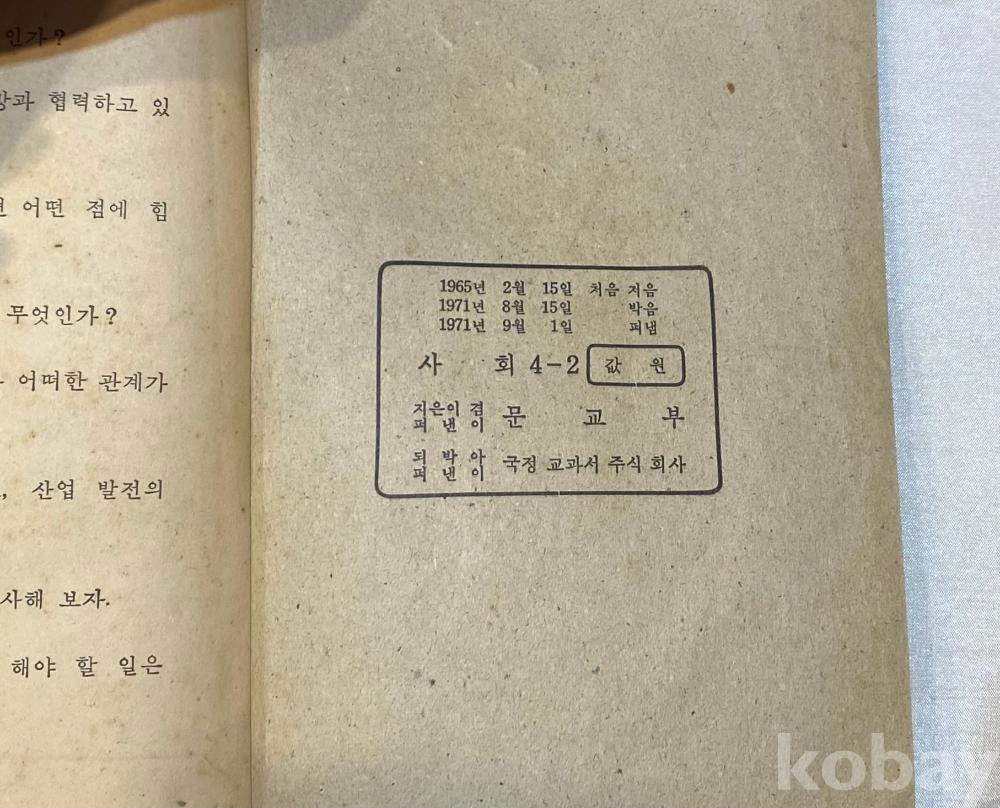 인가?
과 협력하고 있
어떤 점에 힘
무엇인가?
어떠한 관계가
산업 발전의
사해 보자.
해야 할 일은
1965년 2월 15일 처음 지음
1971년 8월 15일 박음
1971년 9월 1일 펴냄
사 회 4-2 값 원
지은이 겸
펴 낸 이
문 교 부
되 박 아
펴 낸 이
국정 교과서 주식 회사
kobay